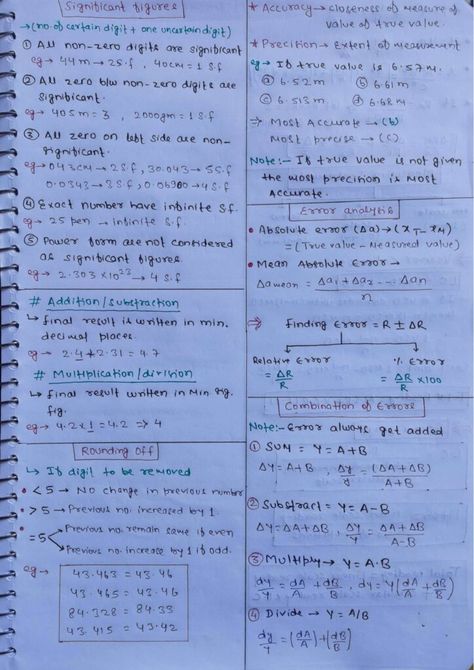 Significant figures
→ (no. of certain digit + one uncertain digit)
① All non-zero digits are significant
eg → 44m → 2S.f, 40cm = 1 S.f
② All zero b/w non-zero digits are
significant.
eg → 405m = 3, 2000gm = 1 S.f
③ All zero on left side are non-
significant.
eg → 043cm → 2 S.f, 30.043 → 5 S.f
0.0343 → 3 S.f, 0.06900 → 4 S.f
④ Exact number have infinite S.f.
eg → 25 pen → infinite S.f.
⑤ Power form are not considered
as significant figures.
eg → 2.303 × 10²³ → 4 S.f
# Addition/subtraction
↳ final result is written in min.
decimal places.
eg → 2.4 + 2.31 = 4.7
# Multiplication/division
↳ final result written in Min. Sig.
fig.
eg → 4.2 × 1 = 4.2 ⇒ 4
Rounding off
↳ If digit to be removed
• < 5 → No change in previous number
• > 5 → Previous no. increased by 1.
• = 5
Previous no. remain same if even
Previous no. increase by 1 if odd.
eg →
43.463 = 43.46
43.465 = 43.46
84.328 = 84.33
43.415 = 43.42
★ Accuracy → closeness of measure of
value of true value.
★ Precision → Extent of measurement
eg → If true value is 6.57m.
ⓐ 6.52m ⓑ 6.61m
ⓒ 6.513m ⓓ 6.68m
⇒ Most Accurate → (b)
Most precise → (c)
Note:- If true value is not given
the most precision is most
Accurate.
Error analysis
• Absolute error (Δa) → (xT - xM)
= (True value - Measured value)
• Mean Absolute Error →
Δamean = Δa1 + Δa2 --- Δan / n
⇒ Finding Error = R ± ΔR
Relative Error
= ΔR/R
% Error
= ΔR/R × 100
Combination of Errors
Note:- Error always get added
① Sum = Y = A+B
ΔY = A+ΔB, ΔY/Y = (ΔA+ΔB)/A+B
② Substract = Y = A-B
ΔY = ΔA+ΔB, ΔY/Y = ΔA+ΔB/A-B
③ Multiply → Y = A·B
dY/Y = dA/A + dB/B, dY = Y(dA/A + dB/B)
④ Divide → Y = A/B
dy/Y = (dA/A) + (dB/B)